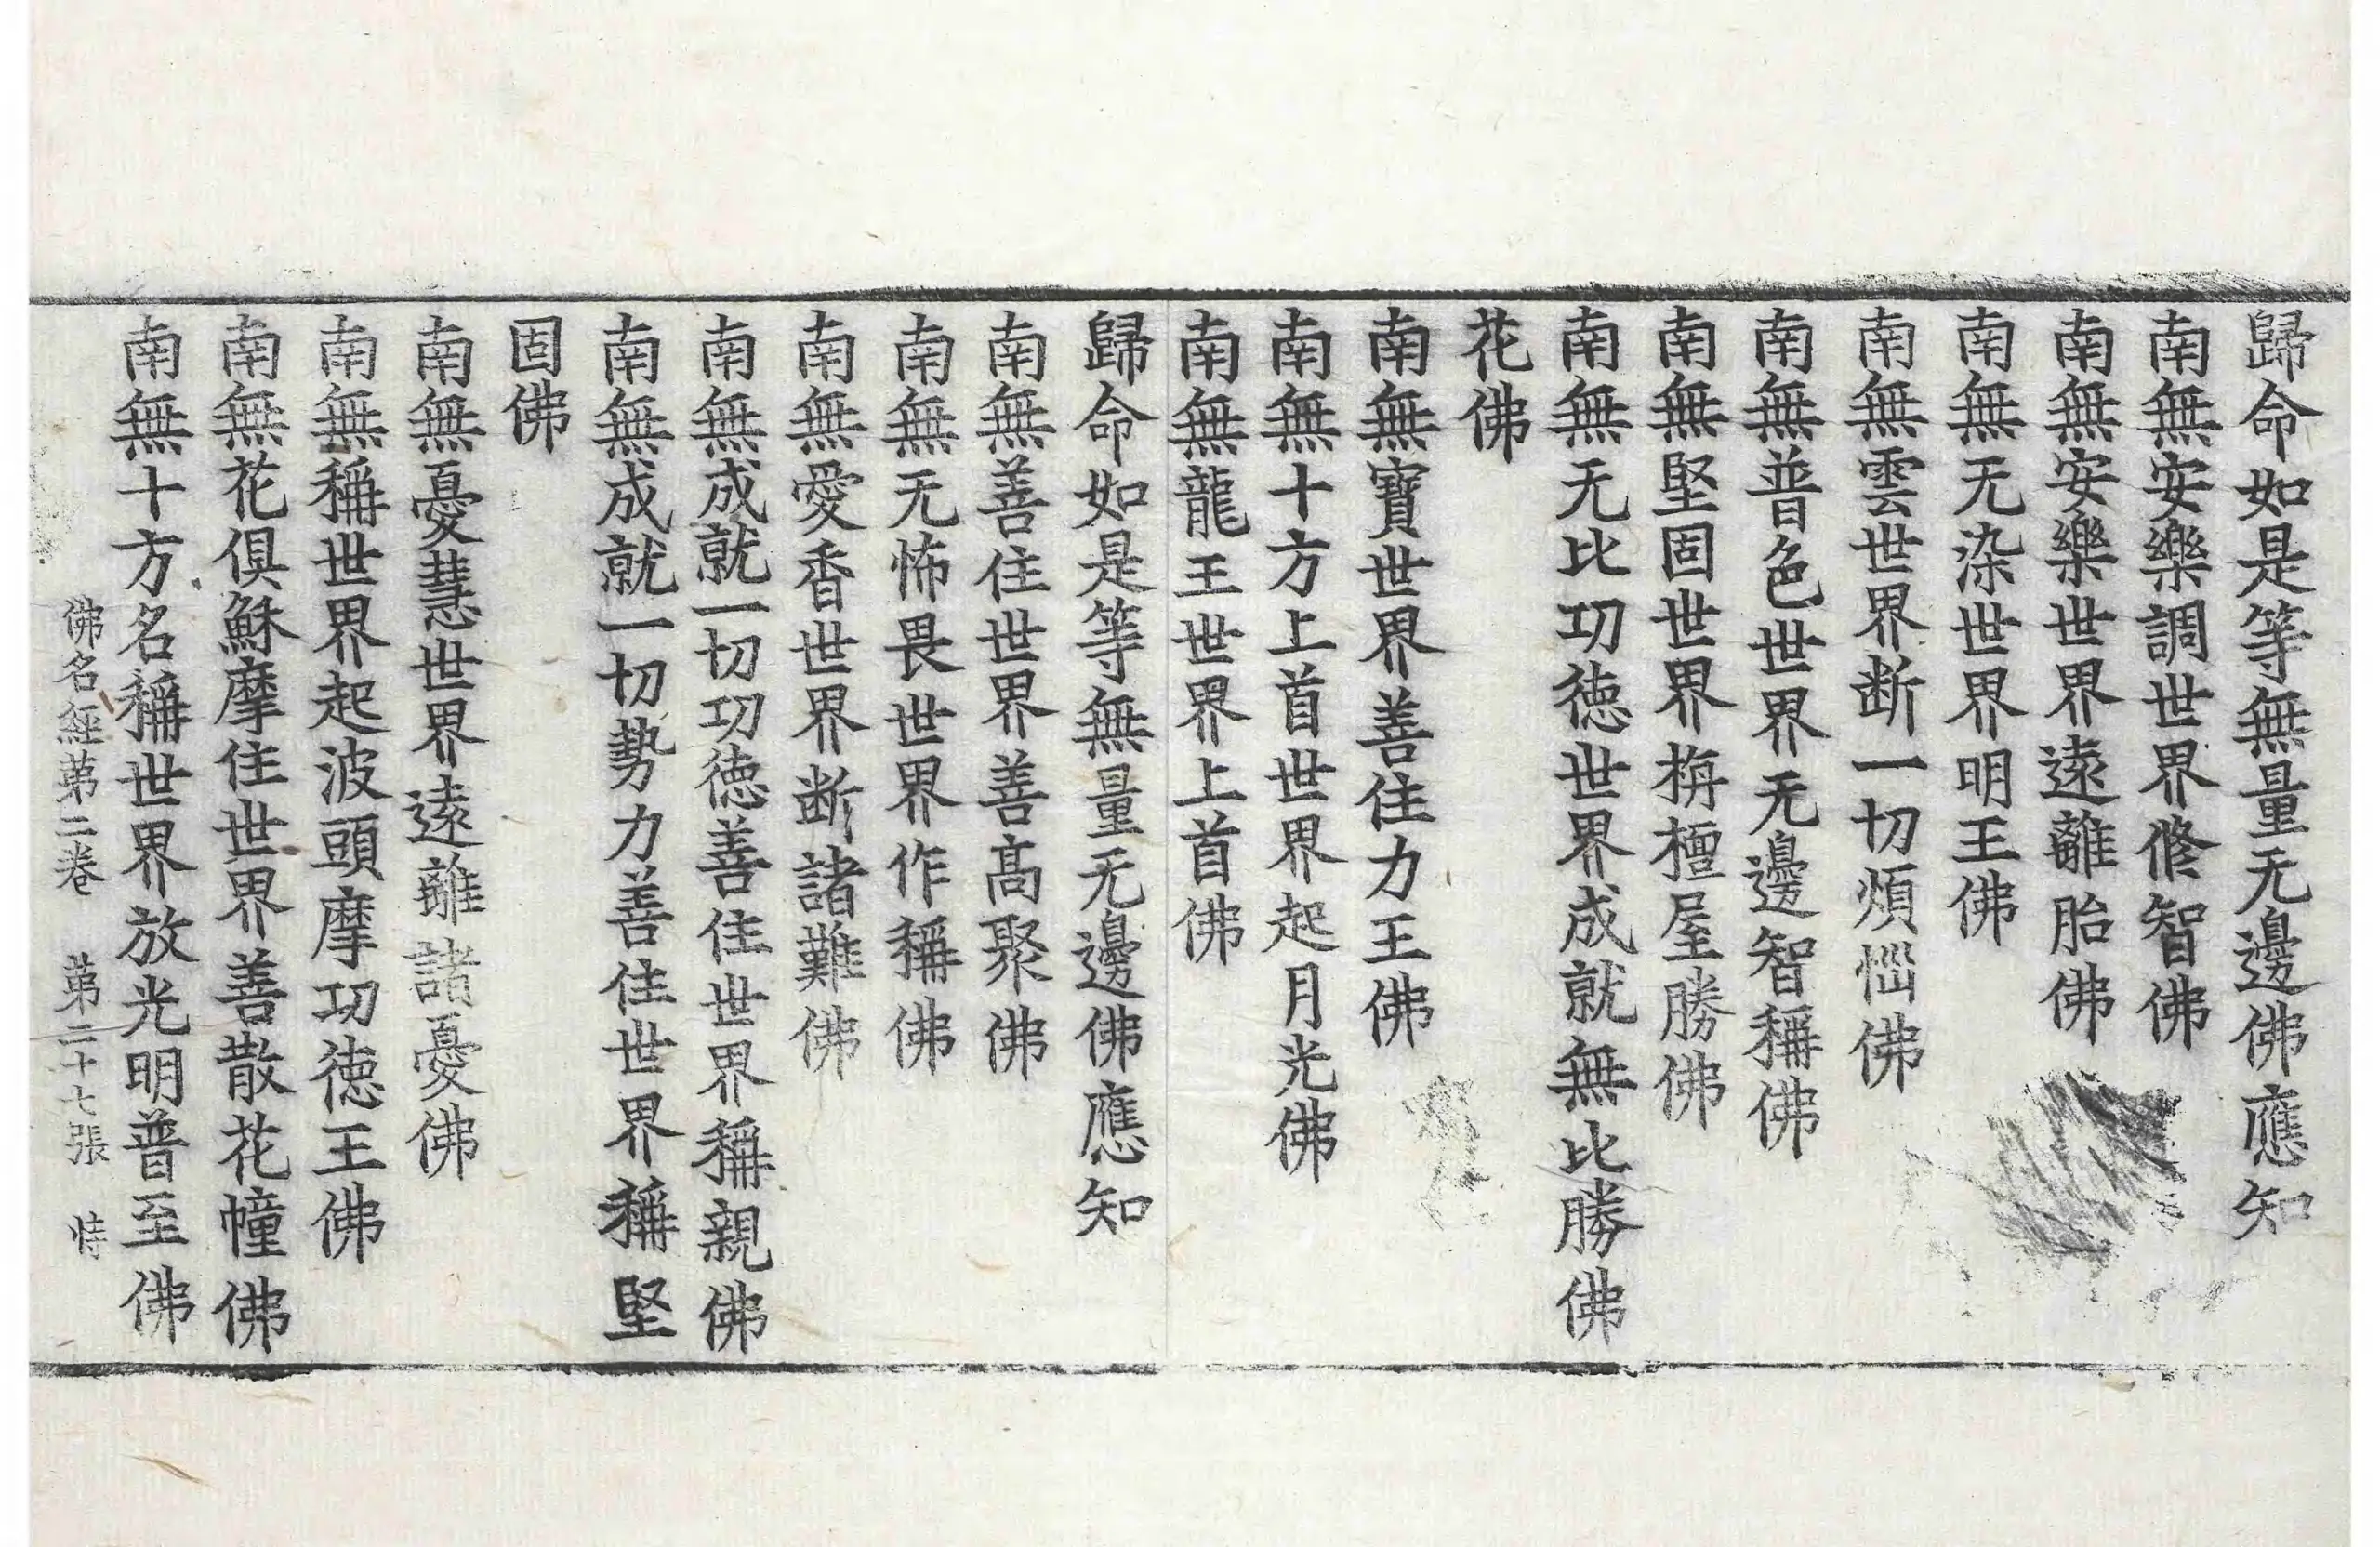 歸命如是等無量无邊佛應知
南無安樂調世界修智佛
南無安樂世界遠離胎佛
南無无染世界明王佛
南無雲世界断一切煩惱佛
南無普色世界无邊智稱佛
南無堅固世界栴檀屋勝佛
南無无比功徳世界成就無比勝佛
花佛
南無寶世界善住力王佛
南無十方上首世界起月光佛
南無龍王世界上首佛
歸命如是等無量无邊佛應知
南無善住世界善高聚佛
南無无怖畏世界作稱佛
南無愛香世界断諸難佛
南無成就一切功徳善住世界稱親佛
南無成就一切勢力善住世界稱堅
固佛
南無憂慧世界遠離諸憂佛
南無稱世界起波頭摩功徳王佛
南無花俱穌摩住世界善散花幢佛
南無十方名稱世界放光明普至佛
佛名經第二卷 第二十七張 恃